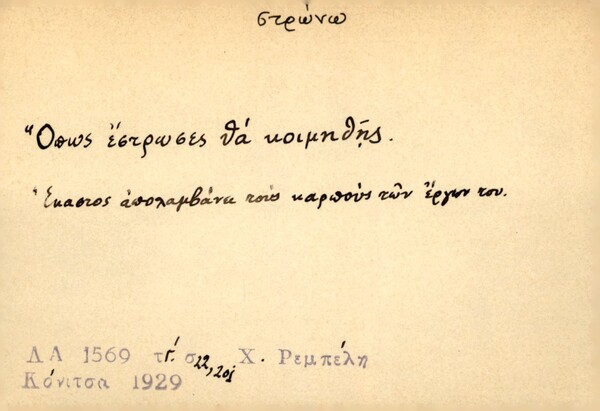 στρώνω
Ὅπως ἔστρωσες θά κοιμηθῇς.
Ἕκαστος ἀπολαμβάνει τούς καρπούς τῶν ἔργων του.
ΛΑ 1569 τ.Γ. σ. 22, 201 Χ. Ρεμπέλη
Κόνιτσα 1929